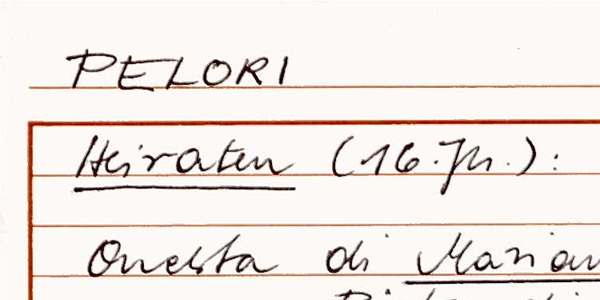 PELORI
Heiraten (16. Jh.):
Onesta di Marian